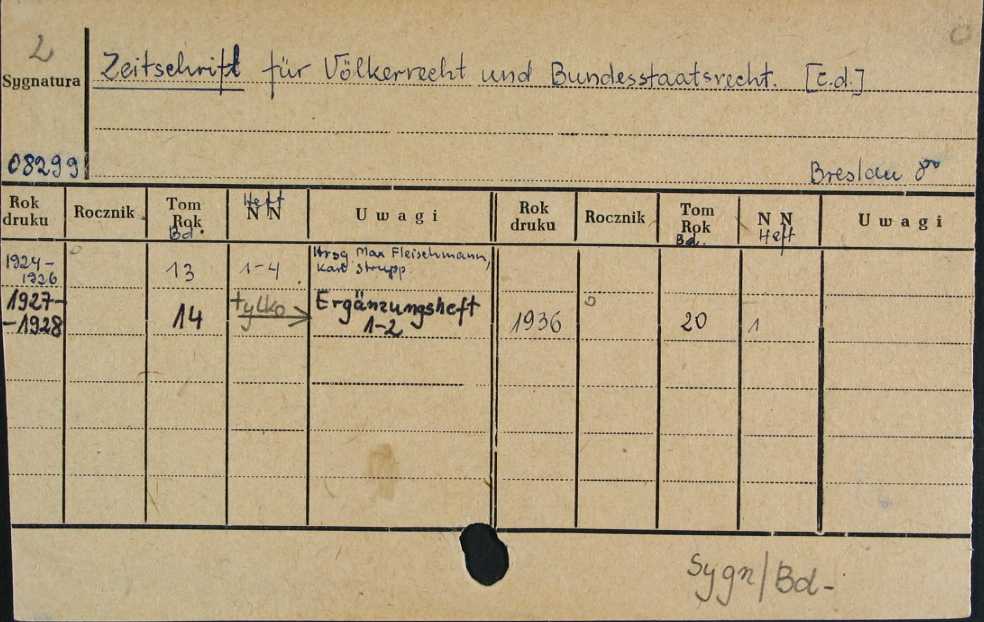 2
Zeitschrift für Völkerrecht und Bundesstaatsrecht. [c.d.]
Sygnatura
08299
Breslau 8°
Rok druku Rocznik Tom Rok Bd. Heft N N Uwagi Rok druku Rocznik Tom Rok Bd. N N Heft Uwagi
1924-1926 13 1-4 Hrsg. Max Fleischmann, Karl Strupp.
1927-1928 14 tylko → Ergänzungsheft 1-2
1936 20 1
Sygn/Bd-